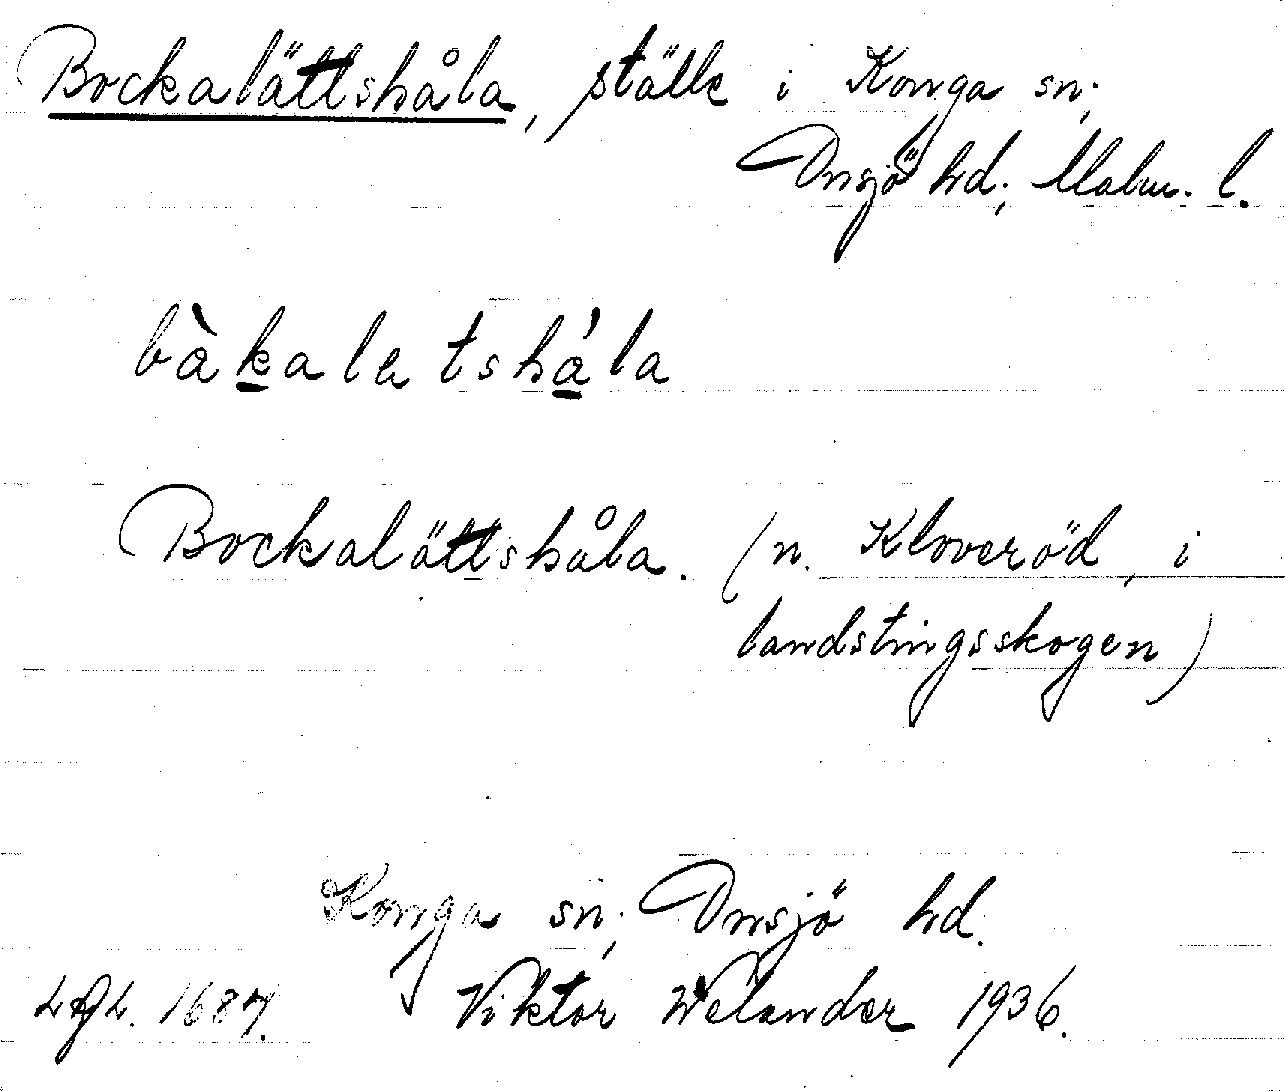 Bockalättshåla, ställe i Konga sn;
Onsjö hd; Malm. l.
bàkaletshá́la
Bockalättshåla. (n. Kloveröd, i
landstingsskogen)
Konga sn; Onsjö hd.
LAL. 1687. Viktor Welander 1936.